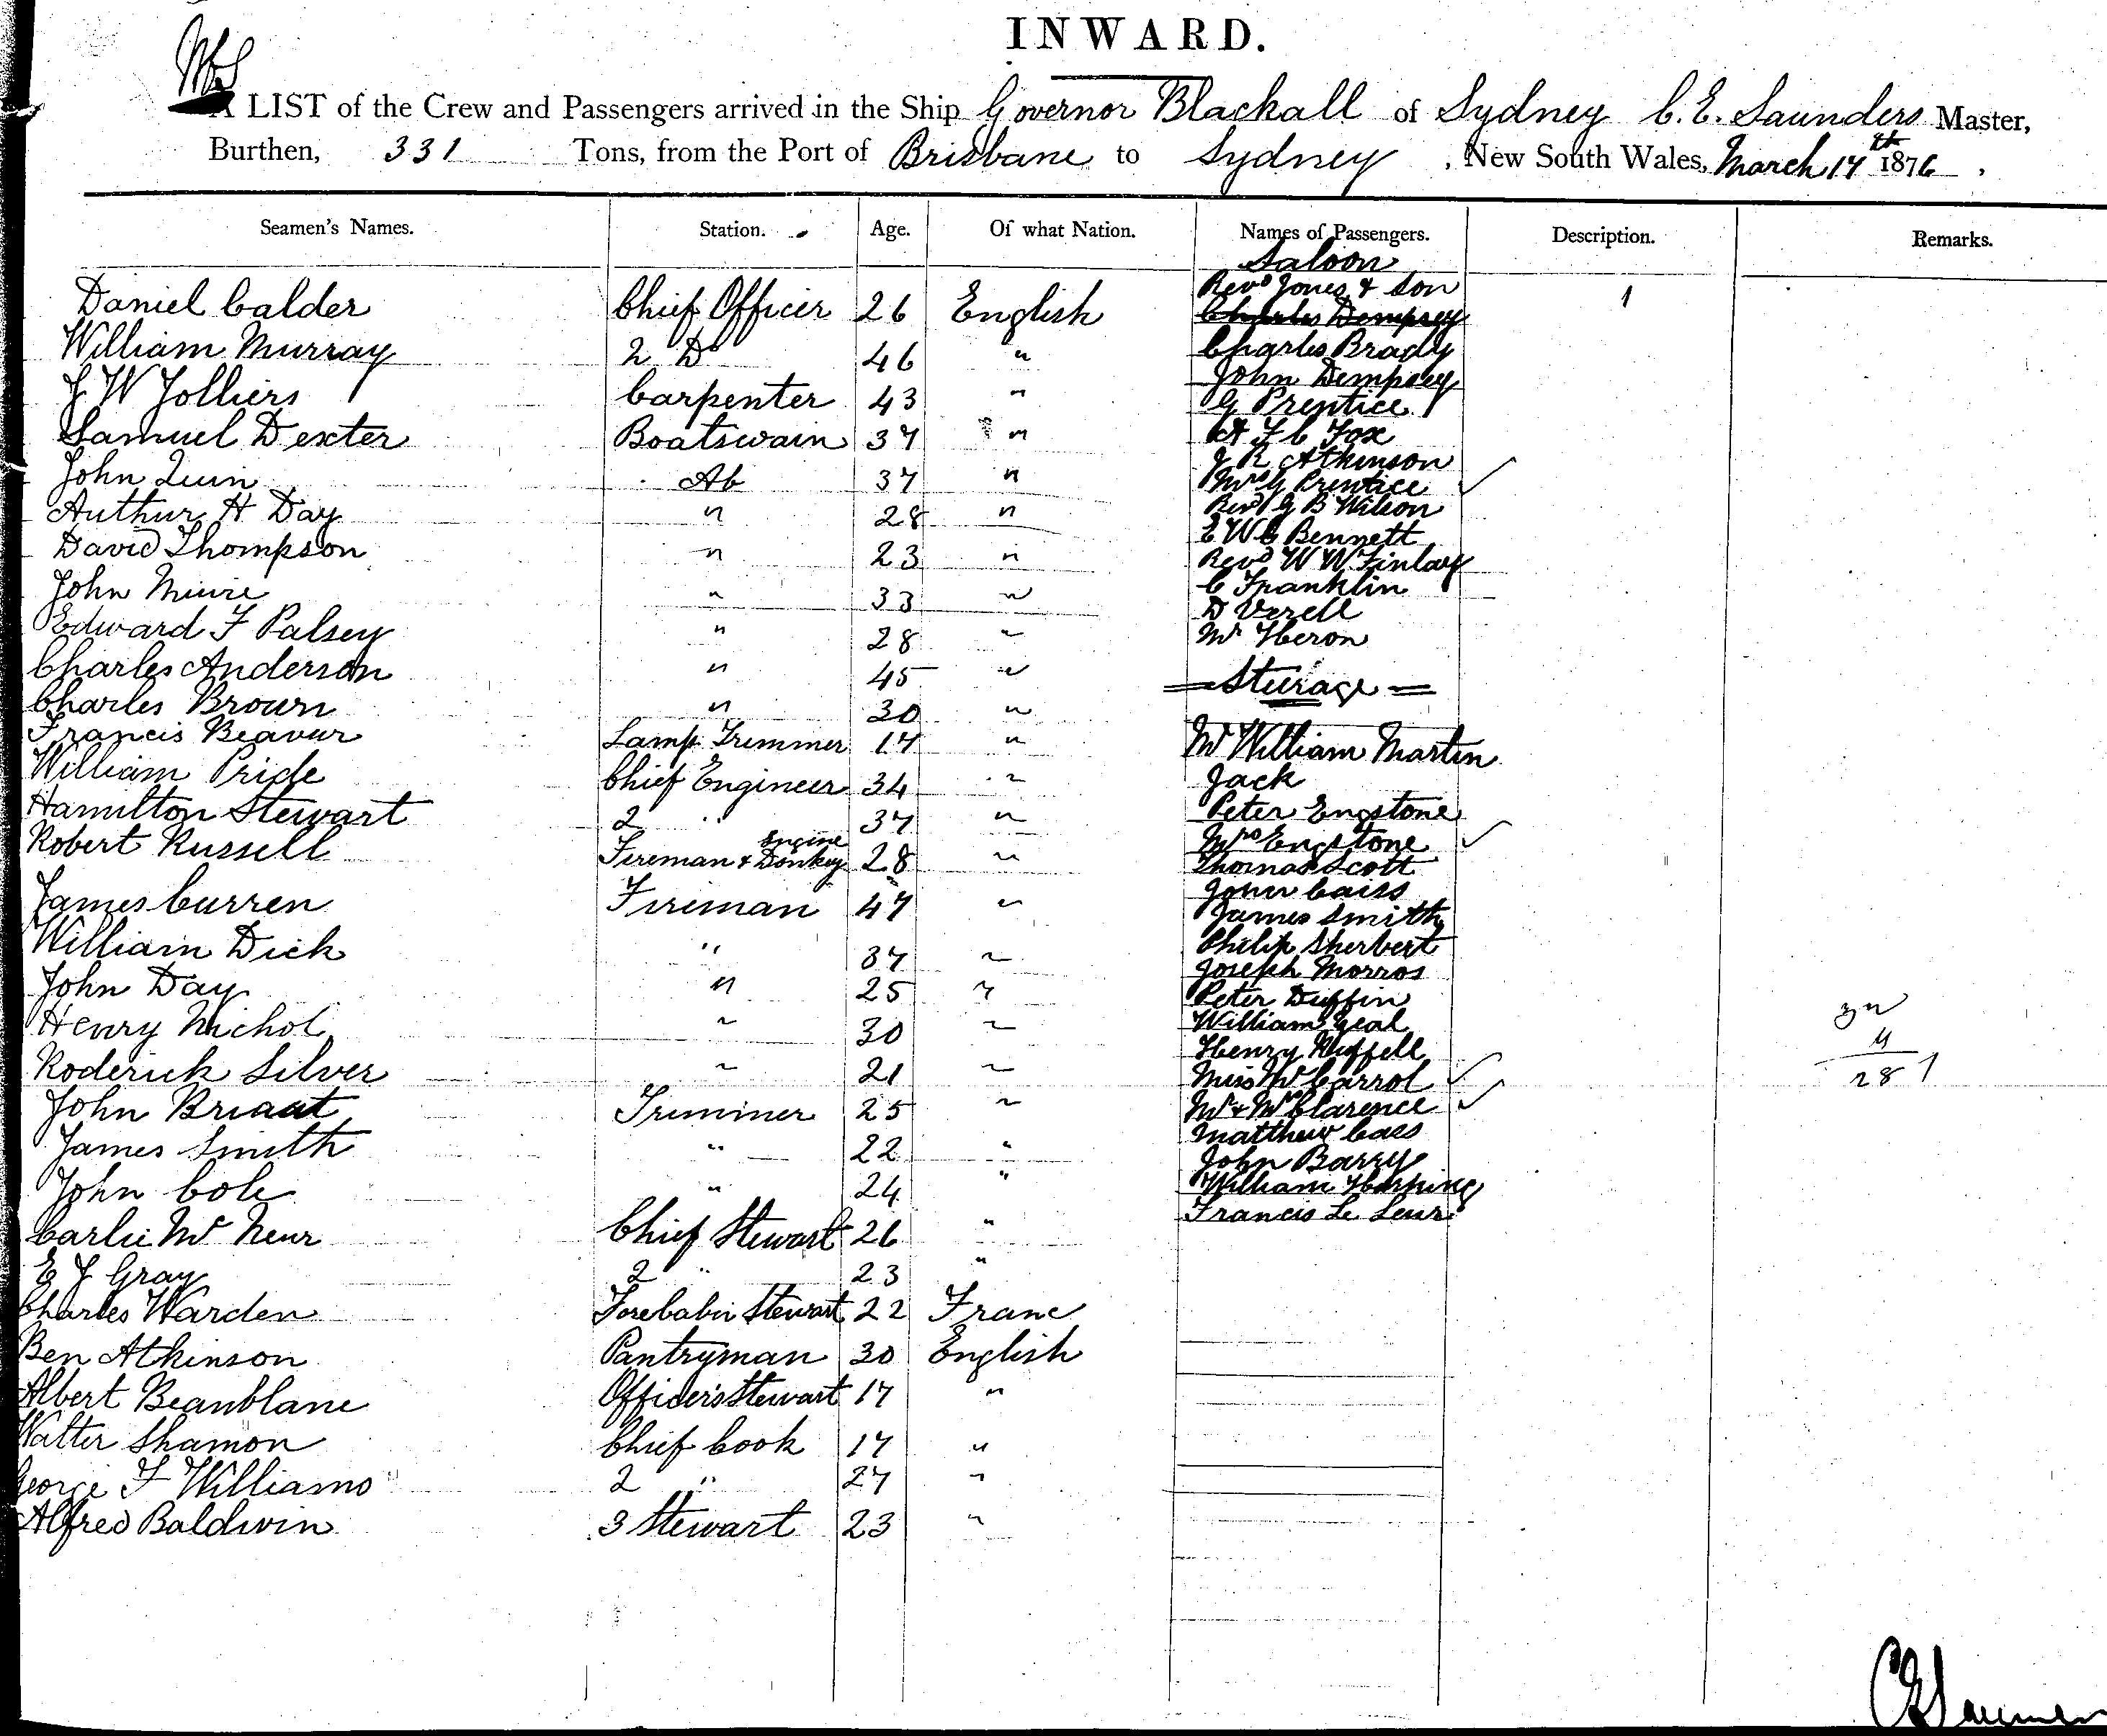 INWARD.
A LIST of the Crew and Passengers arrived in the Ship Governor Blackall of Sydney C. E. Saunders Master,
Burthen, 331 Tons, from the Port of Brisbane to Sydney, New South Wales, March 17th 1876.
Seamen's Names. Station. Age. Of what Nation. Names of Passengers. Description. Remarks.
Saloon
Revd Jones & Son 1
Daniel Calder Chief Officer 26 English Charles Dempsey
William Murray 2 Do 46 " Charles Brady
John Dempsey
J W Jolliers Carpenter 43 " G Prentice
Samuel Dexter Boatswain 37 " A F C Fox
J R Atkinson
John Quin Ab 37 " Mrs G Prentice
Arthur H Day " 28 " Revd G B Wilson
E W C Bennett
David Thompson " 23 " Revd W W Finlay
John Muire " 33 " C Franklin
D Verell
Edward F Palsey " 28 " Mr Heron
Charles Anderson " 45 " Steurage
Charles Brown " 30 "
Francis Beavur Lamp Trimmer 17 " Mr William Martin
William Pride Chief Engineer 34 " Jack
Hamilton Stewart 2 " 37 " Peter Engstone
Mrs Engstone
Robert Russell Fireman & Donkey Engine 28 " Thomas Scott
John Caiss
James Curren Fireman 47 " James Smith
William Dick " 37 " Philip Sherbert
Joseph Morros
John Day " 25 " Peter Duffin
Henry Nichol " 30 " William Geal
Henry Huffell
Roderick Silver " 21 " Miss McCarrol 28
John Briant Trimmer 25 " Mr & Mrs Clarence
Matthew Cass
James Smith " 22 " John Barry
John Cole " 24 " William Hosking
Francis Le Seur
Carlie Mc Neur Chief Stewart 26 "
E J Gray 2 " 23 "
Charles Warden Forecabin Stewart 22 Franc
Ben Atkinson Pantryman 30 English
Albert Beanblane Officers Stewart 17 "
Walter Shamon Chief Cook 17 "
George F Williams 2 " 27 "
Alfred Baldwin 3 Stewart 23 "